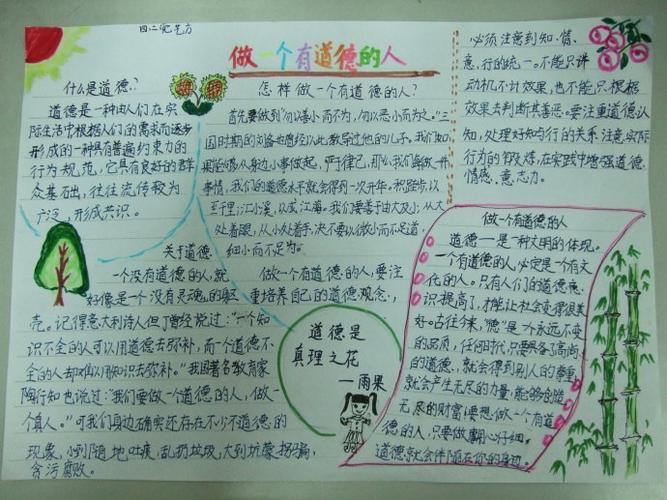 四二
做一个有道德的人
什么是道德?
道德是一种由人们在实
际生活中根据人们的需求而逐步
形成的一种具有普遍约束力的
行为规范,它具有良好的群
众基础,往往流传较为
广泛,形成共识。
关于道德
一个没有道德的人,就
好像是一个没有灵魂的躯
壳。记得意大利诗人但丁曾经说过:"一个知
识不全的人可以用道德去弥补,而一个道德不
全的人却难以用知识去弥补。"我国著名教育家
陶行知也说过:"我们要做一个道德的人,做一
个真人。"可我们身边确实还存在不少不道德的
现象,小到随地吐痰,乱扔垃圾,大到坑蒙拐骗,
贪污腐败。
怎样做一个有道德的人?
首先要做到"勿以善小而不为,勿以恶小而为之。"三
国时期的刘备也曾经以此教导过他的儿子。我们如
果能够从身边小事做起,严于律己,那么我们每做一件
事情,我们的道德水平就会得到一次升华。积跬步,以
至千里;汇小溪,以成江海。我们要善于由大及小,从大
处着眼,从小处着手,决不要以微小而不足道,
细小而不足为。
做一个有道德的人,要注
重培养自己的道德观念,
必须注意到知、情、
意、行的统一。不能只讲
动机不计效果,也不能只根据
效果去判断其善恶。要注重道德认
知,处理好知与行的关系.注意实际
行为的锻炼,在实践中增强道德
情感、意志力。
道德是
真理之花
—雨果
做一个有道德的人
道德——是一种文明的体现。
一个有道德的人,必定是一个有文
化的人。只有人们的道德意
识提高了,才能让社会变得很美
好。古往今来,"德"是一个永远不变
的品质,任何时代,只要具备了高尚
的道德,就会得到别人的尊重,
就会产生无尽的力量,能够创造
无尽的财富!要想做一个有道
德的人,只要做
道德就会伴随在你的身边。